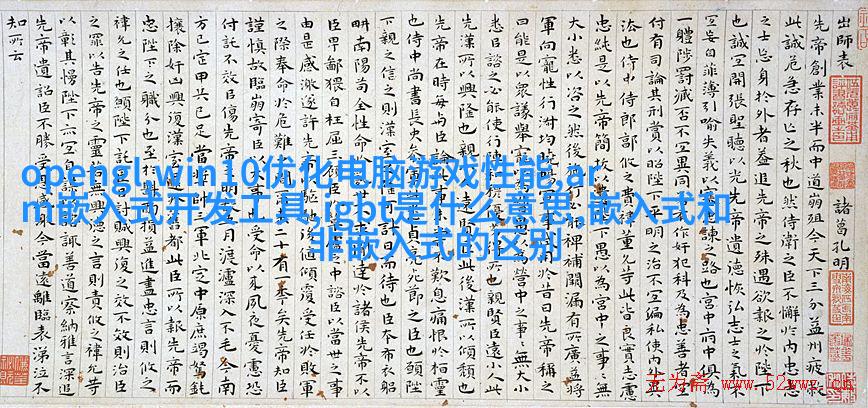 出師表 諸葛孔明
先帝創業未半而中道崩殂今天下三分益州疲敝
此誠危急存亡之秋也然侍衛之臣不懈於內忠志
之士忘身於外者蓋追先帝之殊遇欲報之於陛下
也誠宜開張聖聽以光先帝遺德恢弘志士之氣不
宜妄自菲薄引喻失義以塞忠諫之路也宮中府中俱為
一體陟罰臧否不宜異同若有作奸犯科及為忠善者宜
付有司論其刑賞以昭陛下平明之治不宜偏私使內外異
法也侍中侍郎郭攸之費禕董允等此皆良實志慮
忠純是以先帝簡拔以遺陛下愚以為宮中之事事無
大小悉以咨之然後施行必能裨補闕漏有所廣益將
軍向寵性行淑均曉暢軍事試用於昔日先帝稱之
曰能是以眾議舉寵為督愚以為營中之事事無大小
悉以咨之必能使行陣和穆優劣得所也親賢臣遠小人此
先漢所以興隆也親小人遠賢臣此後漢所以傾頹也
先帝在時每與臣論此事未嘗不歎息痛恨於桓靈
也侍中尚書長史參軍此悉貞亮死節之臣也願陛
下親之信之則漢室之隆可計日而待也臣本布衣躬
耕南陽苟全性命於亂世不求聞達於諸侯先帝不以
臣卑鄙猥自枉屈三顧臣於草廬之中諮臣以當世之事
由是感激遂許先帝以驅馳後值傾覆受任於敗軍
之際奉命於危難之間爾來二十有一年矣先帝知臣
謹慎故臨崩寄臣以大事也受命以來夙夜憂慮恐
付託不效以傷先帝之明故五月渡瀘深入不毛今南
方已定甲兵已足當獎帥三軍北定中原庶竭駑鈍
攘除奸凶興復漢室還於舊都此臣所以報先帝而
忠陛下之職分也至於斟酌損益進盡忠言則攸之
禕允之任也願陛下託臣以討賊興復之效不效則治臣
之罪以告先帝之靈若無興德之言則責攸之禕允等
以彰其慢陛下亦宜自謀以諮諏善道察納雅言深追
先帝遺詔臣不勝受恩感激今當遠離臨表涕泣不
知所云
openglwin10优化电脑游戏性能,ar
m嵌入式开发工具,igbt是什么意思,嵌入式和
非嵌入式的区别
无为斋 www.52wwz.cn